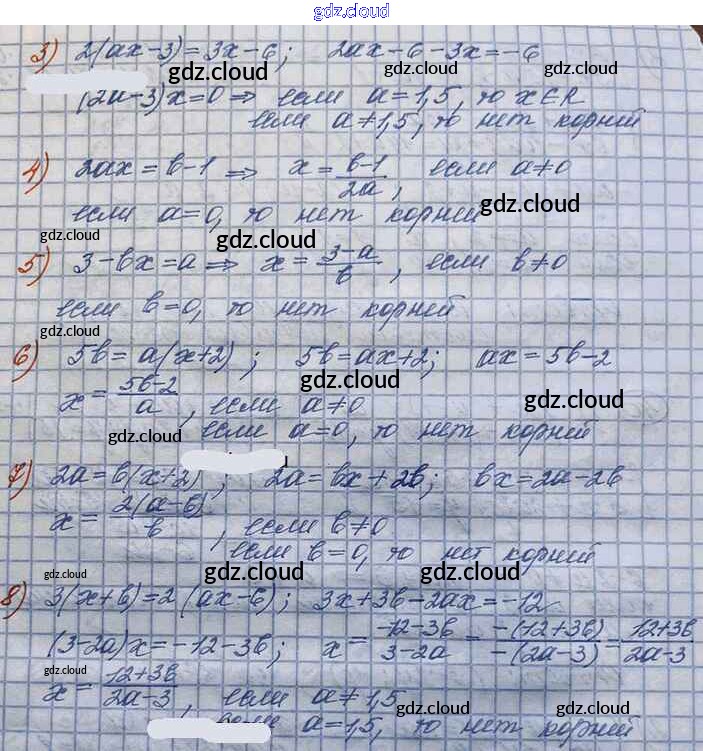 gdz.cloud
gdz.cloud
3) 2(ax-3)=3x-6; 2ax-6-3x=-6
gdz.cloud gdz.cloud gdz.cloud
(2a-3)x=0 ⇒ если a=1,5, то x∈R
если a≠1,5, то нет корней
4) 2ax=b-1 ⇒ x=\frac{b-1}{2a}, если a≠0
если a=0, то нет корней gdz.cloud
gdz.cloud gdz.cloud
5) 3-bx=a ⇒ x=\frac{3-a}{b}, если b≠0
если b=0, то нет корней
gdz.cloud
6) 5b=a(x+2); 5b=ax+2; ax=5b-2
gdz.cloud gdz.cloud
x=\frac{5b-2}{a}, если a≠0
gdz.cloud если a=0, то нет корней
7) 2a=b(x+2); 2a=bx+2b; bx=2a-2b
x=\frac{2(a-b)}{b}, если b≠0
если b=0, то нет корней
gdz.cloud gdz.cloud gdz.cloud
8) 3(x+b)=2(ax-6); 3x+3b-2ax=-12
(3-2a)x=-12-3b; x=\frac{-12-3b}{3-2a}=\frac{-(12+3b)}{-(2a-3)}=\frac{12+3b}{2a-3}
x=\frac{12+3b}{2a-3}, если a≠1,5
gdz.cloud gdz.cloud gdz.cloud
если a=1,5, то нет корней